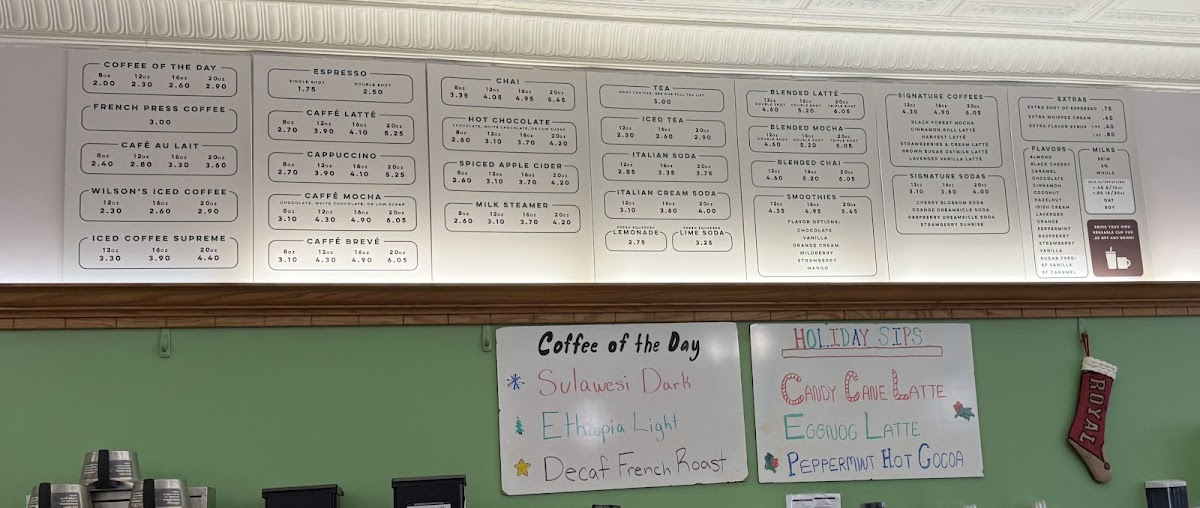 COFFEE OF THE DAY
8oz 12oz 16oz 20oz
2.00 2.30 2.60 2.90
FRENCH PRESS COFFEE
3.00
CAFÉ AU LAIT
8oz 12oz 16oz 20oz
2.40 2.80 3.30 3.60
WILSON'S ICED COFFEE
12oz 16oz 20oz
2.30 2.60 2.90
ICED COFFEE SUPREME
12oz 16oz 20oz
3.30 3.90 4.40
ESPRESSO
SINGLE SHOT DOUBLE SHOT
1.75 2.50
CAFFÉ LATTÉ
8oz 12oz 16oz 20oz
2.70 3.90 4.10 5.25
CAPPUCCINO
8oz 12oz 16oz 20oz
2.70 3.90 4.10 5.25
CAFFÉ MOCHA
CHOCOLATE, WHITE CHOCOLATE, OR LOW SUGAR
8oz 12oz 16oz 20oz
3.10 4.30 4.90 6.05
CAFFÉ BREVÉ
8oz 12oz 16oz 20oz
3.10 4.30 4.90 6.05
CHAI
8oz 12oz 16oz 20oz
3.35 4.05 4.95 5.45
HOT CHOCOLATE
CHOCOLATE, WHITE CHOCOLATE, OR LOW SUGAR
8oz 12oz 16oz 20oz
2.60 3.10 3.70 4.20
SPICED APPLE CIDER
8oz 12oz 16oz 20oz
2.60 3.10 3.70 4.20
MILK STEAMER
8oz 12oz 16oz 20oz
2.60 3.10 3.70 4.20
TEA
MANY CHOICES! SEE OUR FULL TEA LIST
3.00
ICED TEA
12oz 16oz 20oz
2.30 2.60 2.90
ITALIAN SODA
12oz 16oz 20oz
2.85 3.35 3.75
ITALIAN CREAM SODA
12oz 16oz 20oz
3.10 3.60 4.00
FRESH SQUEEZED
LEMONADE
2.75
FRESH SQUEEZED
LIME SODA
3.25
BLENDED LATTÉ
12oz 16oz 20oz
DOUBLE SHOT DOUBLE SHOT TRIPLE SHOT
4.60 5.20 6.05
BLENDED MOCHA
12oz 16oz 20oz
DOUBLE SHOT DOUBLE SHOT TRIPLE SHOT
4.60 5.20 6.05
BLENDED CHAI
12oz 16oz 20oz
4.60 5.20 6.05
SMOOTHIES
12oz 16oz 20oz
4.35 4.95 5.45
FLAVOR OPTIONS:
CHOCOLATE
VANILLA
ORANGE CREAM
WILDBERRY
STRAWBERRY
MANGO
SIGNATURE COFFEES
12oz 16oz 20oz
4.30 4.90 6.05
BLACK FOREST MOCHA
CINNAMON ROLL LATTÉ
HARVEST LATTÉ
STRAWBERRIES & CREAM LATTÉ
BROWN SUGAR OATMILK LATTÉ
LAVENDER VANILLA LATTÉ
SIGNATURE SODAS
12oz 16oz 20oz
3.10 3.60 4.00
CHERRY BLOSSOM SODA
ORANGE DREAMSICLE SODA
RASPBERRY DREAMSICLE SODA
STRAWBERRY SUNRISE
EXTRAS
EXTRA SHOT OF ESPRESSO .75
EXTRA WHIPPED CREAM .40
EXTRA FLAVOR SYRUP .40
.80
FLAVORS
ALMOND
BLACK CHERRY
CARAMEL
CHOCOLATE
CINNAMON
COCONUT
HAZELNUT
IRISH CREAM
LAVENDER
ORANGE
PEPPERMINT
RASPBERRY
STRAWBERRY
VANILLA
SUGAR FREE:
SF VANILLA
SF CARAMEL
MILKS
SKIM
2%
WHOLE
MILK ALTERNATIVES:
OAT
SOY
BRING YOUR OWN
REUSABLE CUP FOR
ANY DRINK!
Coffee of the Day
Sulawesi Dark
Ethiopia Light
Decaf French Roast
HOLIDAY SIPS
CANDY CANE LATTE
EGGNOG LATTE
PEPPERMINT HOT COCOA
ROYAL